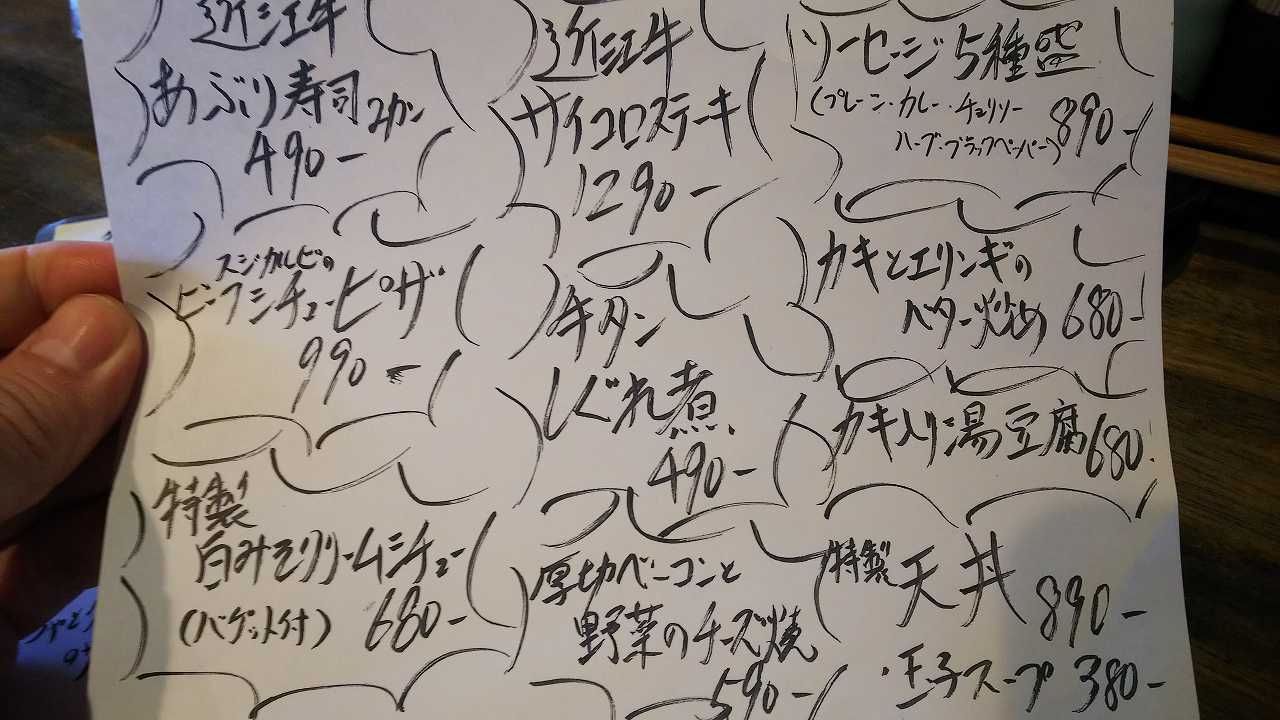 近江牛
あぶり寿司 2カン
490-
スジカルビの
ビーフシチューピザ
990-
特製
白みそクリームシチュー
(バゲット付) 680-
近江牛
サイコロステーキ
1290-
牛タン
しぐれ煮
490-
厚切ベーコンと
野菜のチーズ焼
590-
ソーセージ5種盛
(プレーン・カレー・チョリソー
ハーブ・ブラックペーパー) 890-
カキとエリンギの
バター炒め 680-
カキ入り湯豆腐 680
特製 天丼
890-
・玉子スープ 380-